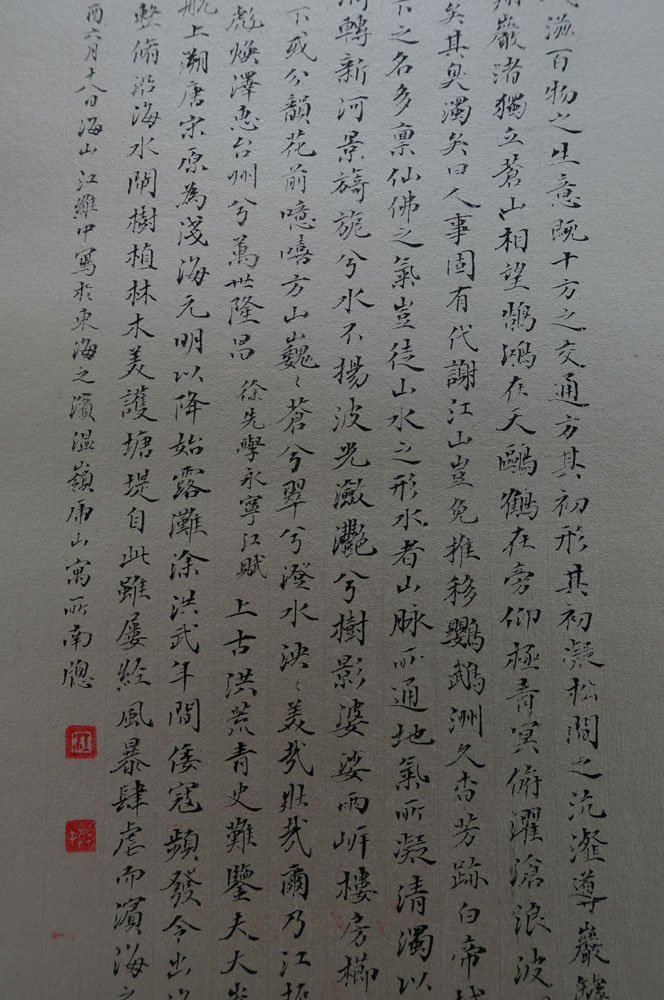 滋百物之生意既十方之交通方其初形其初凝松間之沆瀣導巖
巖渚獨立蒼山相望鵠鴻在天鷗鶴在旁仰極青冥俯濯滄浪波
矣其臭濁矣曰人事固有代謝江山豈免推移鸚鵡洲久杳芳跡白帝
下之名多禀仙佛之氣豈徒山水之形水者山脉所通地氣所凝清濁以
轉新河景旖旎兮水不揚波光瀲灧兮樹影婆娑兩岍樓房櫛
下或兮韻花前噫嘻方山巍巍蒼兮翠兮澄水泱泱美哉壯哉爾乃江
彪煥澤惠台州兮萬世隆昌 徐先學永寧江賦 上古洪荒青史難鑒夫大
上溯唐宋原為淺海元明以降始露灘涂洪武年間倭寇頻發令出
整脩沿海水閘樹植林木美護塘堤自此雖屡經風暴肆虐而濱海之
酉六月十八日海山江維中寫於東海之濱温嶺虎山寓所南牕